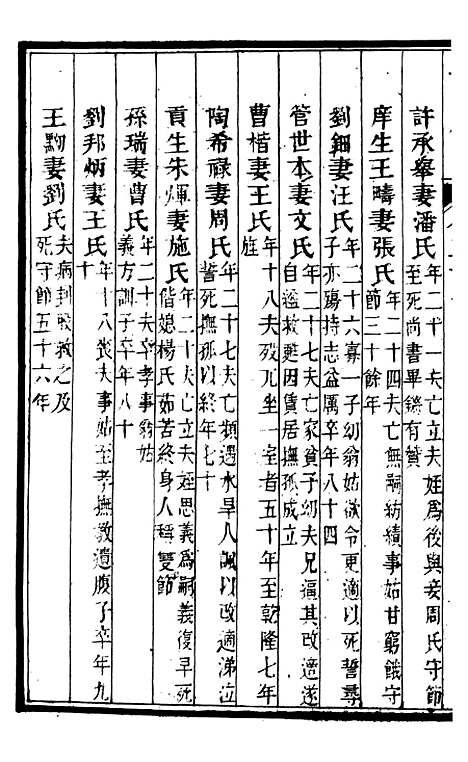 許承舉妻潘氏年二十一夫亡立夫姪爲後與妾周氏守節
至死尚書畢鏘有贊
庠生王疇妻張氏年二十四夫亡無嗣紡績事姑甘窮餓守
節三十餘年
劉鈿妻汪氏年二十六寡一子幼翁姑欲令更適以死誓尋
子亦殤持志益厲卒年八十四
管世本妻文氏年二十七夫亡家貧子幼夫兄逼其改適遂
自縊救甦因賃居撫孤成立
曹楷妻王氏年十八夫歿兀坐一室者五十年至乾隆七年
旌
陶希祿妻周氏年二十七夫亡頻遇水旱人諷以改適涕泣
誓死撫孤以終年七十
貢生朱煇妻施氏年二十夫亡立夫姪思義爲嗣義復早死
偕媳楊氏茹苦終身人稱雙節
孫瑞妻曹氏年二十夫卒孝事翁姑
義方訓子卒年八十
劉邦炳妻王氏年十八喪夫事姑至孝撫教遺腹子卒年九
十
王勲妻劉氏夫病刲股救之及
死守節五十六年